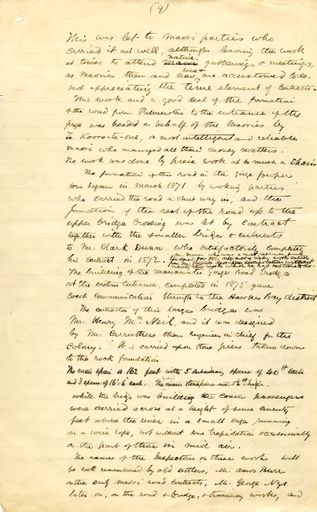 (9)
This was left to Maori parties who
carried it out well, although leaving the work
at times to attend native gatherings & meetings,
as Maories then and now are accustomed to do,
not appreciating the time element of contracts.
This work and a good deal of the formation
of the road from Palmerston to the entrance of the
gorge was headed on behalf of the Maories by
a most intelligent and reliable
Maori who managed all their money matters.
The work was done by piece work at so much a chain
The formation of the road in the gorge proper
was begun in March 1871 by working parties
who carried the road a short way in, and the
formation of the rest of the road up to the
upper bridge crossing was let by contract
together with the smaller bridges & culverts
to Mr Clark Dunn who satisfactorily completed
his contract in 1872.
The building of the Manawatu gorge road bridge
at the eastern entrance, completed in 1875 gave
Coach Communication through to the Hawkes Bay district
The contractor of this large bridge was
Mr Henry McNeil, and it was designed
by Mr Carruthers then Engineer in Chief for the
Colony. It is carried upon three piers taken down
to the rock foundation
The main span is 162 feet with 5 subsidiary spans of 40 ft each
and 3 spans of 16'.6 each.
While the bridge was building the coach passengers
were carried across at a height of some seventy
feet above the river in a small cage running
on a wire rope, not without some trepidation occasionally
on the part of those in mid air.
The names of the Inspectors on these works will
be well remembered by old settlers, Mr Amos Burr
on the early Maori road contracts, Mr George Nye
later on, on the road & bridge, & tramway works, and